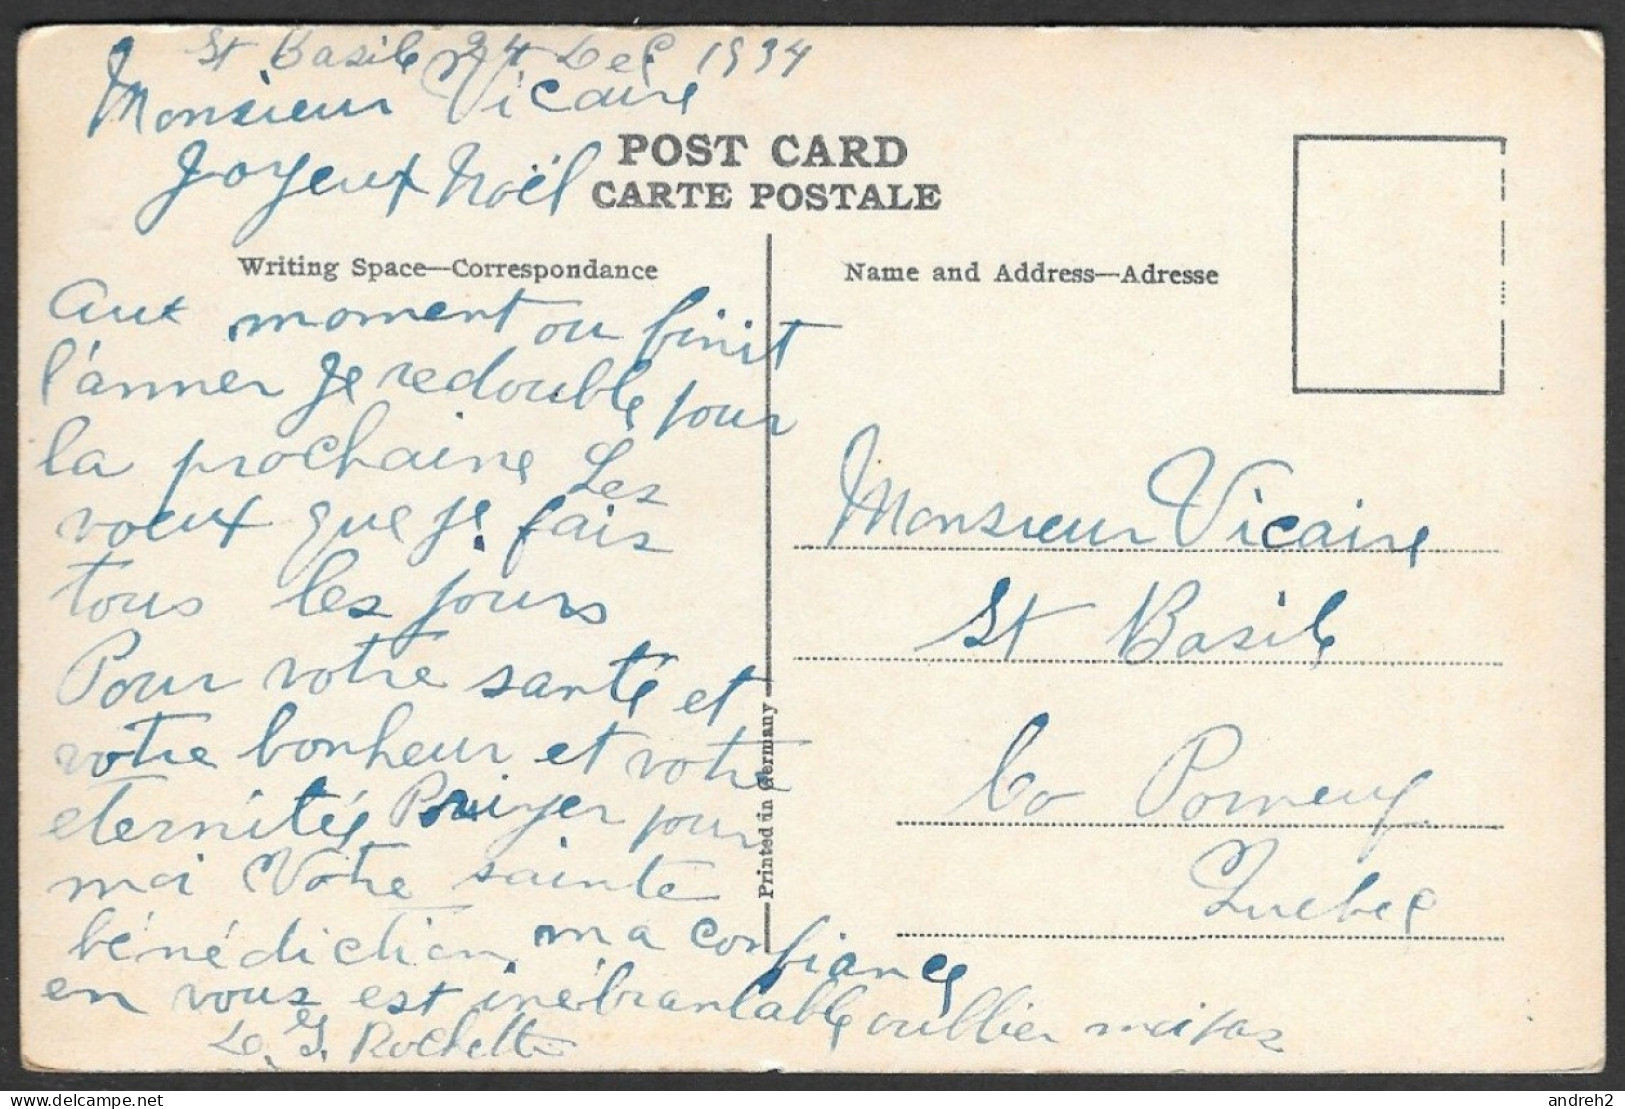 St Basile 24 Dec 1934
Monsieur Vicaire
Joyeux Noël
POST CARD
CARTE POSTALE
Writing Space—Correspondance
Name and Address—Adresse
aux moment ou finit
l'anner Je redouble pour
la prochaine Les
voeux que je fais
tous les jours
Pour votre santé et
votre bonheur et votre
eternités Priyer pour
moi Votre sainte
bénédiction ma confiance
en vous est inébranlable oullier moi pas
L. G. Rochette
Printed in Germany
Monsieur Vicaire
St Basile
Co Porneuf
Quebec
andreh2